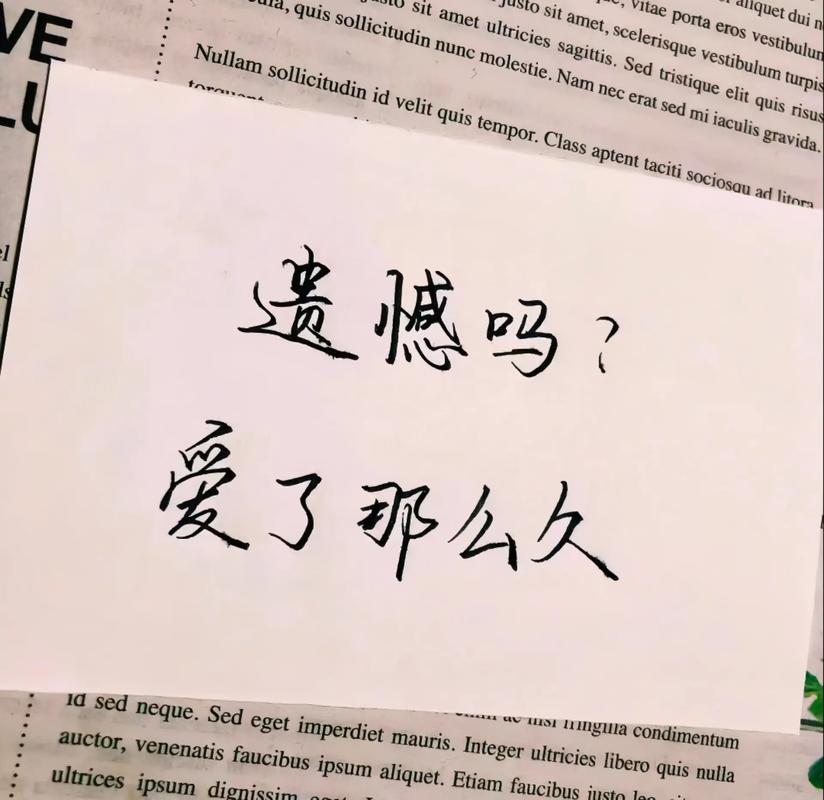 VE
LU
quis sollicitudin nunc molestie. Nam nec erat sed mi iaculis gravida.
justo sit amet ultricies sagittis. Sed tristique elit quis risus
justo sit amet, scelerisque vestibulum turpis
vitae porta eros vestibulum
aliquet dui
Nullam sollicitudin id velit quis tempor. Class aptent taciti sociosqu ad litora
torquent
遗憾吗？
爱了那么久
id sed neque. Sed eget imperdiet mauris. Integer ultricies libero quis nulla
ac nisl fringilla condimentum
auctor, venenatis faucibus ipsum aliquet. Etiam faucibus justo leo
ultrices ipsum dignissim